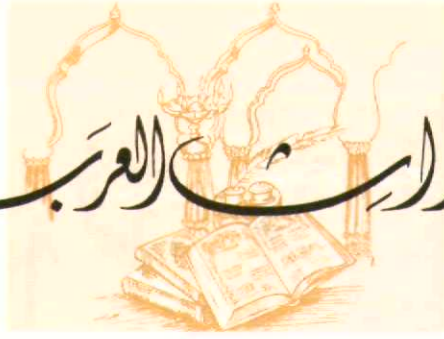 راث العرَب